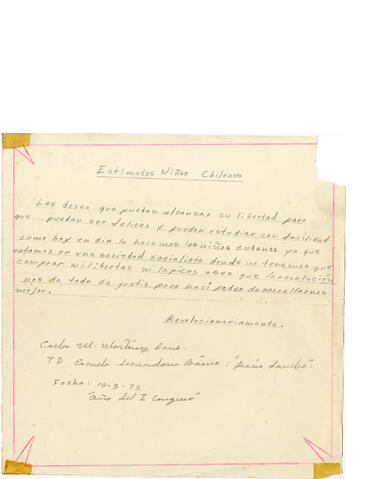 Estimados Niños Chilenos
Les deseo que puedan alcanzar su libertad para
que puedan ser felices y puedan estudiar con facilidad
como hoy en dia lo hacemos los niños cubanos ya que
estamos en una sociedad socialista donde no tenemos que
comprar ni libretas ni lapices o sea que la revolución
nos da todo de gratis para haci poder desarrollarnos
mejor.
Revolucionariamente.
Carlos M. Martínez
7 D Escuela Secundaria Básica: "Jesús Sancho".
Fecha: 10-3-75
"Año del I Congreso"